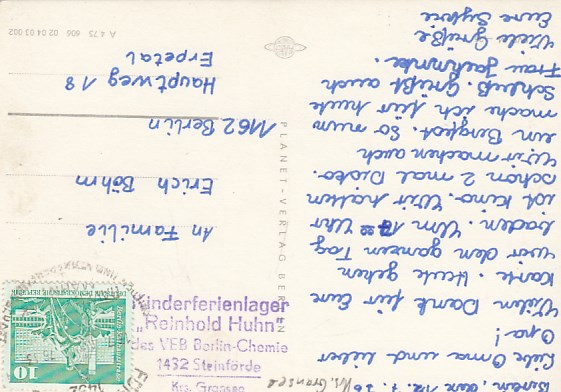 Liebe Oma und lieber
Opa!
Vielen Dank für Eure
Karte. Heute gehen
wir den ganzen Tag
baden. Um 17⁰⁰ Uhr
ist Kino. Wir hatten
schon 2 mal Disko.
Wir machen auch
ein Bergfest. So nun
mache ich für heute
Schluß. Grüßt auch
Frau
Viele Grüße
Eure Sylvia
An Familie
Erich Böhm
1162 Berlin
Hauptweg 18
Erpetal
PLANET-VERLAG BERLIN
A 4/75 606 02 04 03 002
Kinderferienlager
"Reinhold Huhn"
des VEB Berlin-Chemie
1432 Steinförde
Krs. Gransee
Krs. Gransee
10
DEUTSCHE DEMOKRATISCHE REPUBLIK